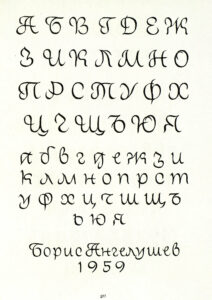 А Б В Г Д Е Ж
З И К Л М Н О
П Р С Т У Ф Х
Ц Ч Щ Ъ Ю Я
а б в г д е ж з и
к л м н о п р с т
у ф х ц ч ш щ ъ
ь ю я
Борис Ангелушев
1959